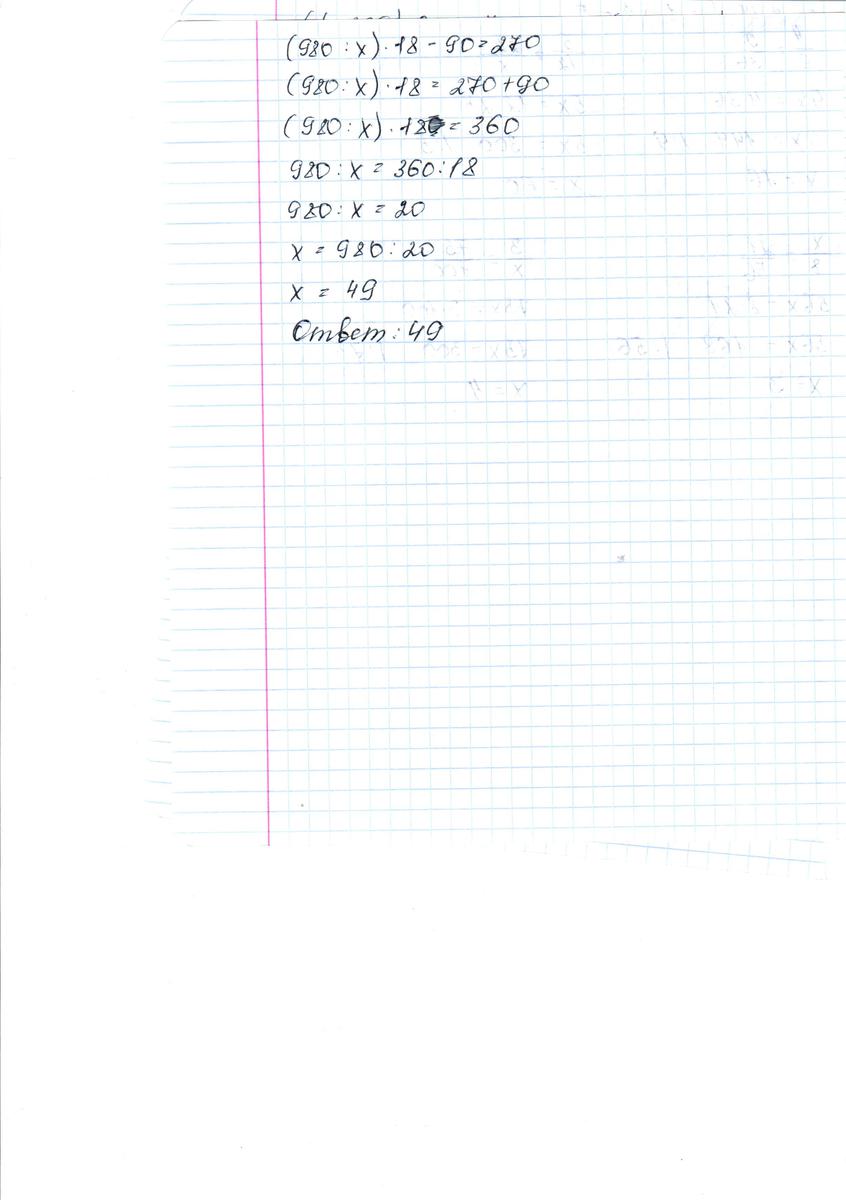 (980 : x) · 18 - 90 = 270
(980 : x) · 18 = 270 + 90
(980 : x) · 18 = 360
980 : x = 360 : 18
980 : x = 20
x = 980 : 20
x = 49
Ответ: 49